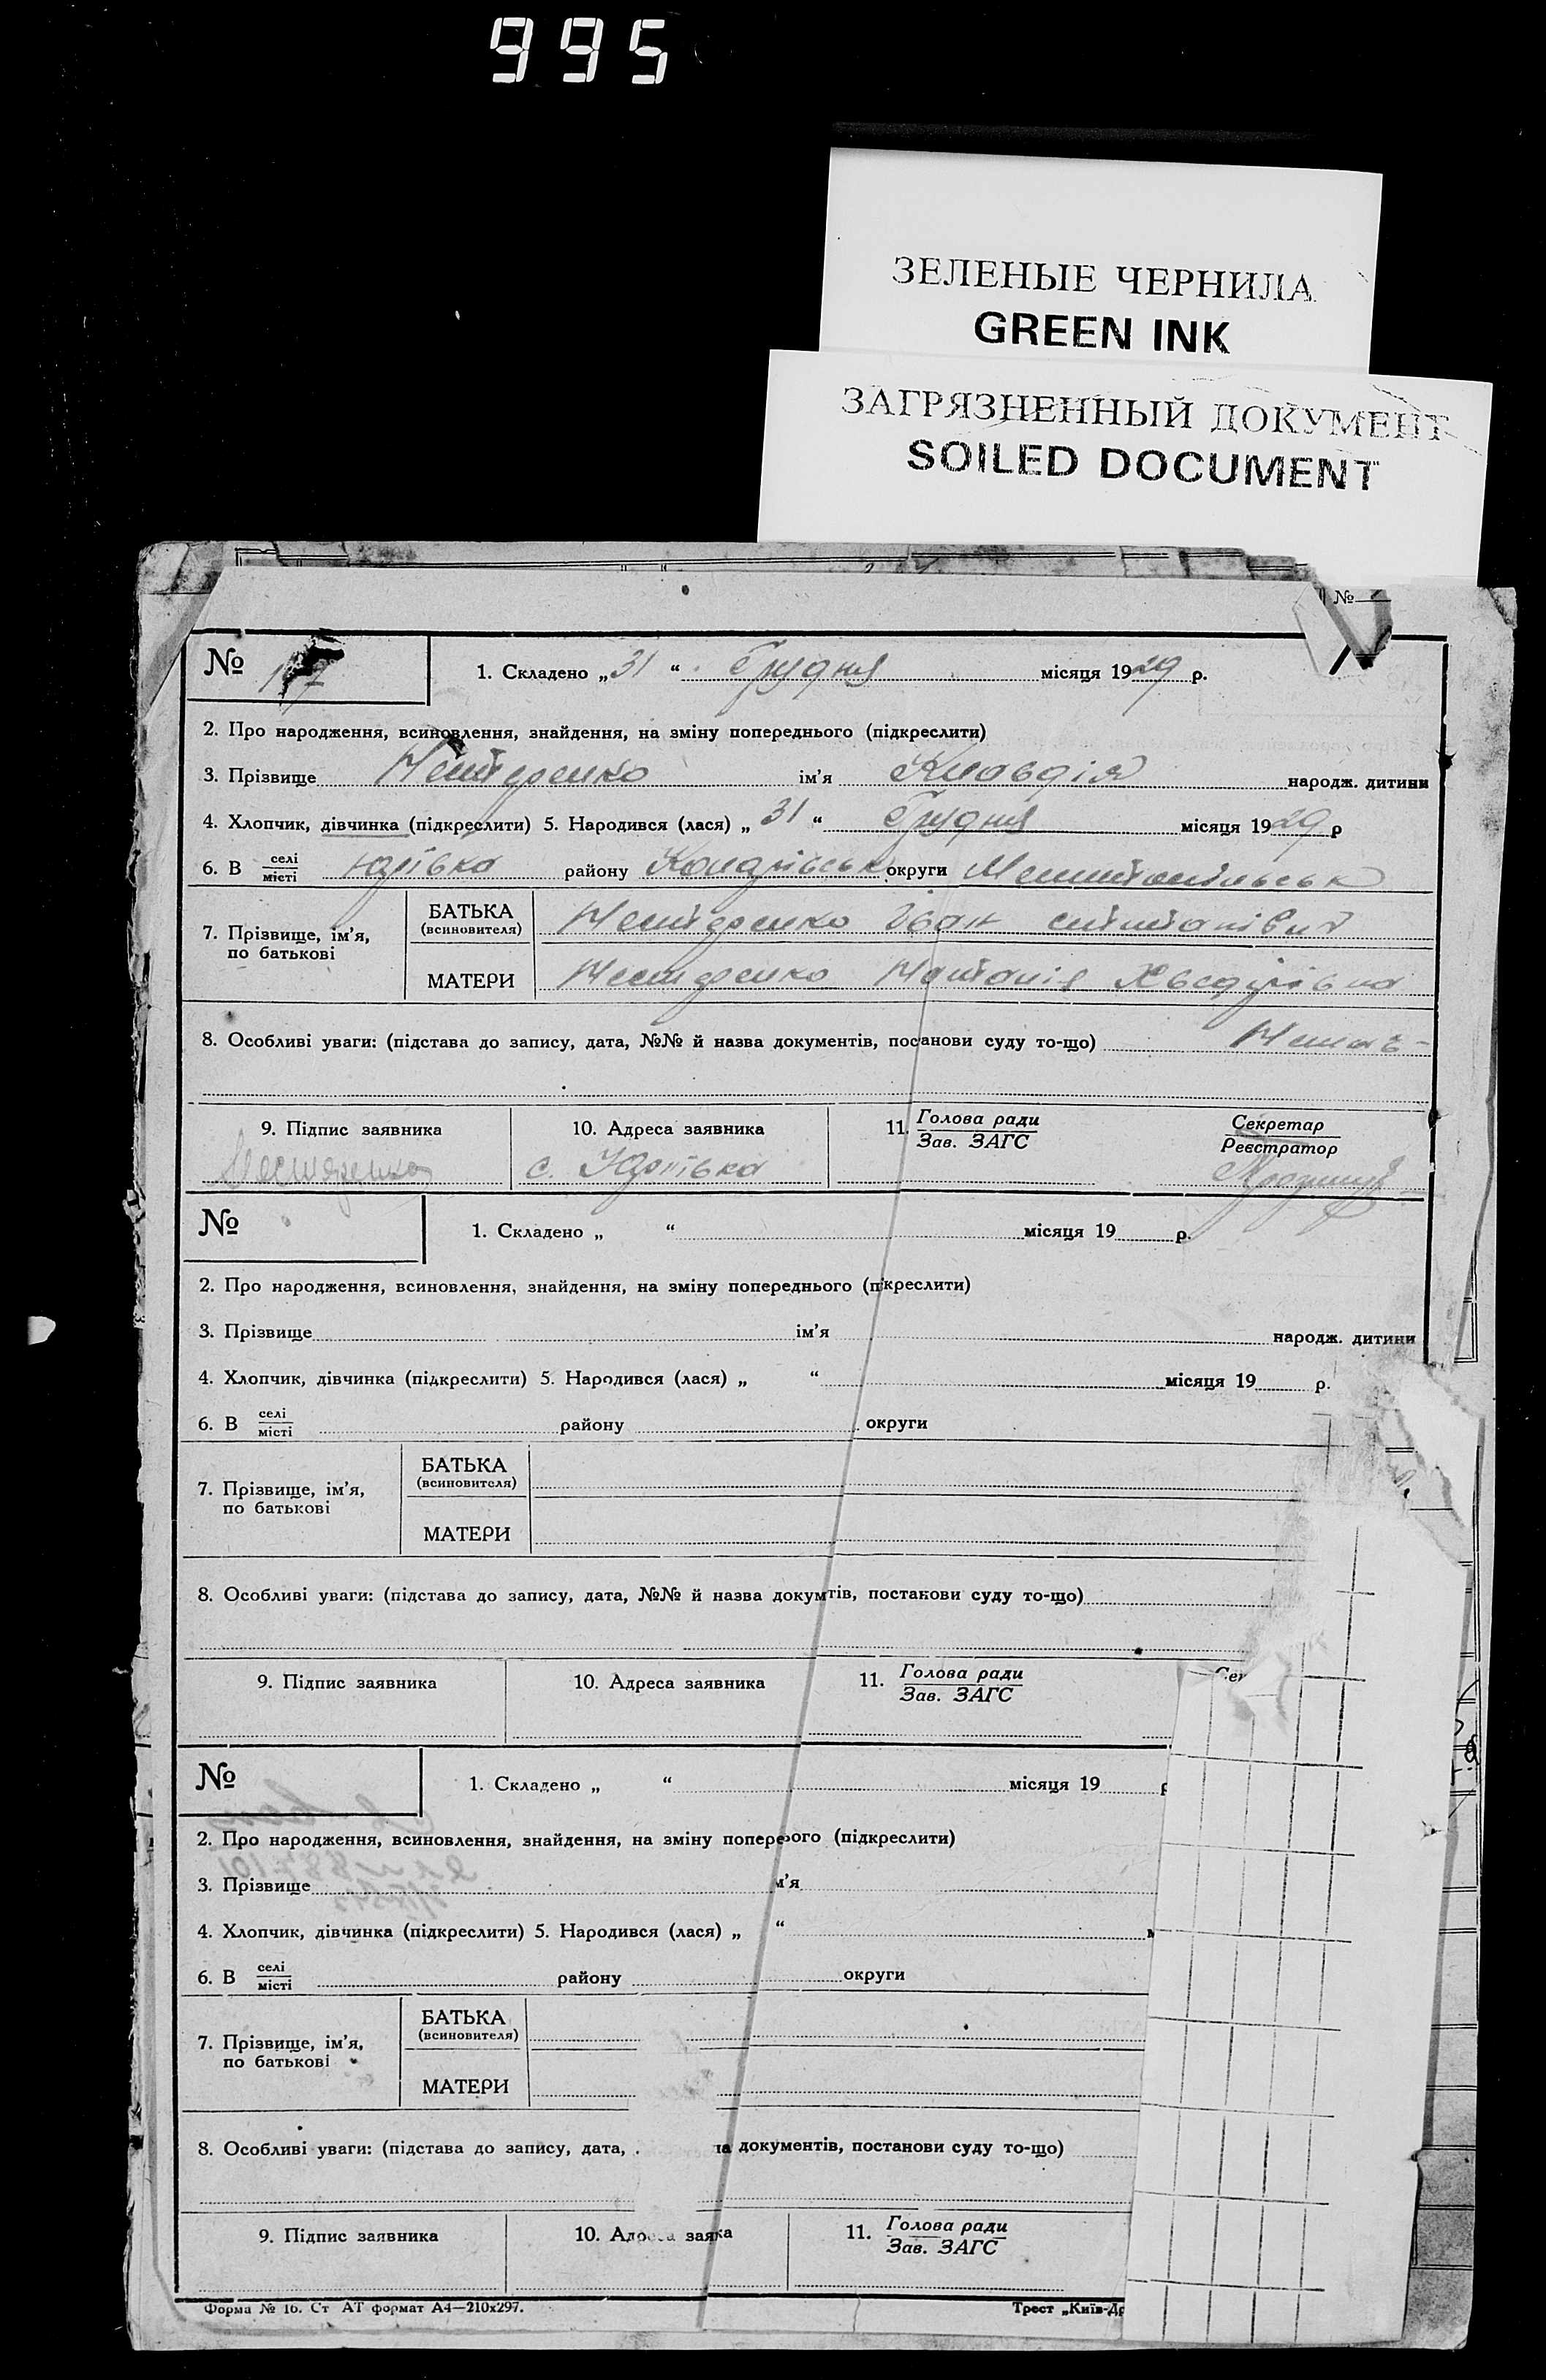 995
ЗЕЛЕНЫЕ ЧЕРНИЛА
GREEN INK
ЗАГРЯЗНЕННЫЙ ДОКУМЕНТ
SOILED DOCUMENT
№
№ 1. Складено „31“ Грудня місяця 1929 р.
2. Про народження, всиновлення, знайдення, на зміну попереднього (підкреслити)
3. Прізвище Нестеренко ім'я Кловдія народж. дитини
4. Хлопчик, дівчинка (підкреслити) 5. Народився (лася) „31“ Грудня місяця 1929 р
6. В селі місті Юріївка району округи
7. Прізвище, ім'я, по батькові
БАТЬКА (всиновителя) Нестеренко Іван
МАТЕРИ Нестеренко
8. Особливі уваги: (підстава до запису, дата, №№ й назва документів, постанови суду то-що)
9. Підпис заявника 10. Адреса заявника 11. Голова ради Зав. ЗАГС Секретар Реєстратор
Нестеренко с. Юріївка
№ 1. Складено „ “ місяця 19 р.
2. Про народження, всиновлення, знайдення, на зміну попереднього (пкреслити)
3. Прізвище ім'я народж. дитини
4. Хлопчик, дівчинка (підкреслити) 5. Народився (лася) „ “ місяця 19 р.
6. В селі місті району округи
7. Прізвище, ім'я, по батькові
БАТЬКА (всиновителя)
МАТЕРИ
8. Особливі уваги: (підстава до запису, дата, №№ й назва докумтів, постанови суду то-що)
9. Підпис заявника 10. Адреса заявника 11. Голова ради Зав. ЗАГС Сек
№ 1. Складено „ “ місяця 19 р
2. Про народження, всиновлення, знайдення, на зміну попереього (підкреслити)
3. Прізвище м'я
4. Хлопчик, дівчинка (підкреслити) 5. Народився (лася) „ “
6. В селі місті району округи
7. Прізвище, ім'я, по батькові
БАТЬКА (всиновителя)
МАТЕРИ
8. Особливі уваги: (підстава до запису, дата, на документів, постанови суду то-що)
9. Підпис заявника 10. Адреса заявка 11. Голова ради Зав. ЗАГС
Форма № 1б. Ст АТ формат А4—210х297. Трест „Київ-Др